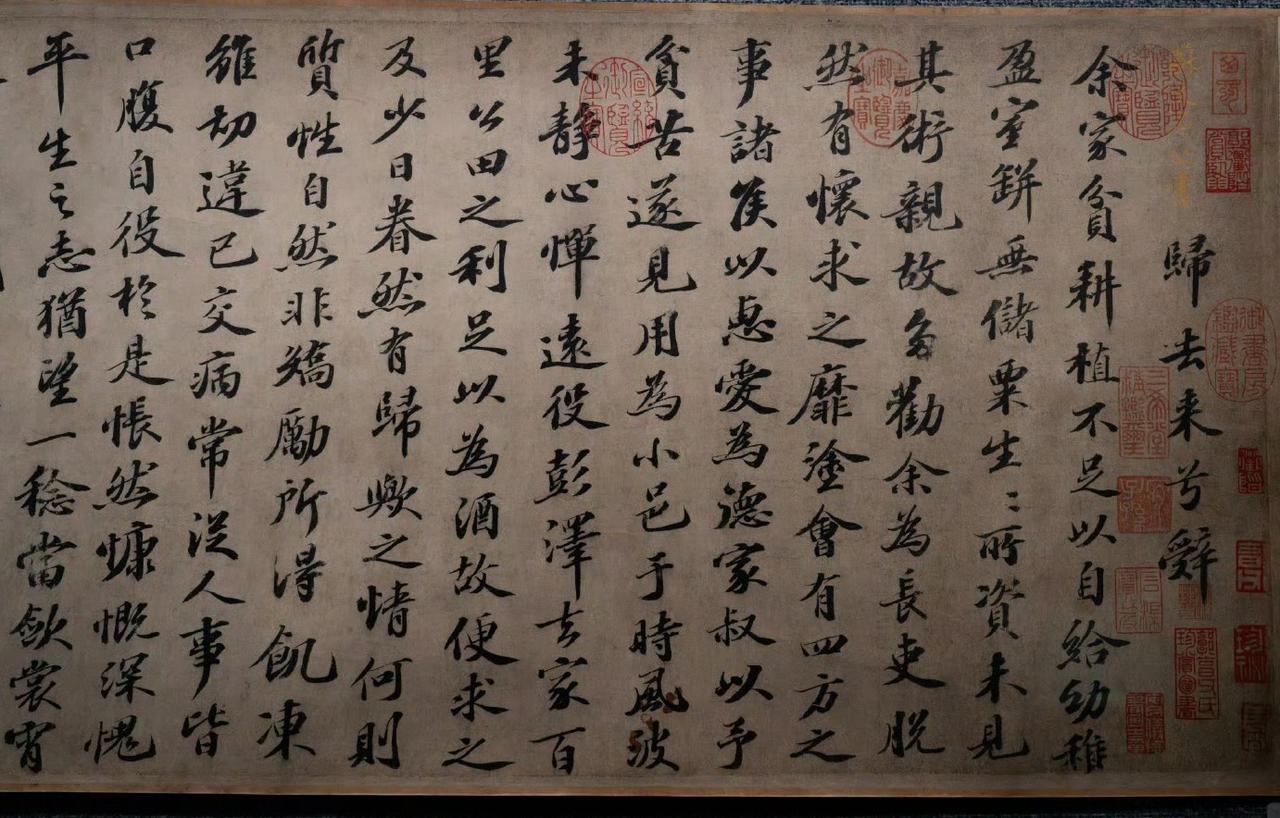 歸去来兮辭
余家貧耕植不足以自給幼稚
盈室缾無儲粟生〻所資未見
其術親故多勸余為長吏脫
然有懷求之靡塗會有四方之
事諸侯以惠愛為德家叔以予
貧苦遂見用為小邑于時風波
未靜心憚遠役彭澤去家百
里公田之利足以為酒故便求之
及少日眷然有歸歟之情何則
質性自然非矯勵所得飢凍
雖切違已交病常從人事皆
口腹自役於是悵然慷慨深愧
平生之志猶望一稔當斂裳宵